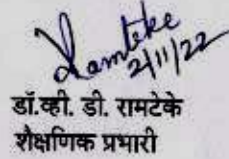 Ramteke
2/11/22
डॉ.व्ही. डी. रामटेके
शैक्षणिक प्रभारी